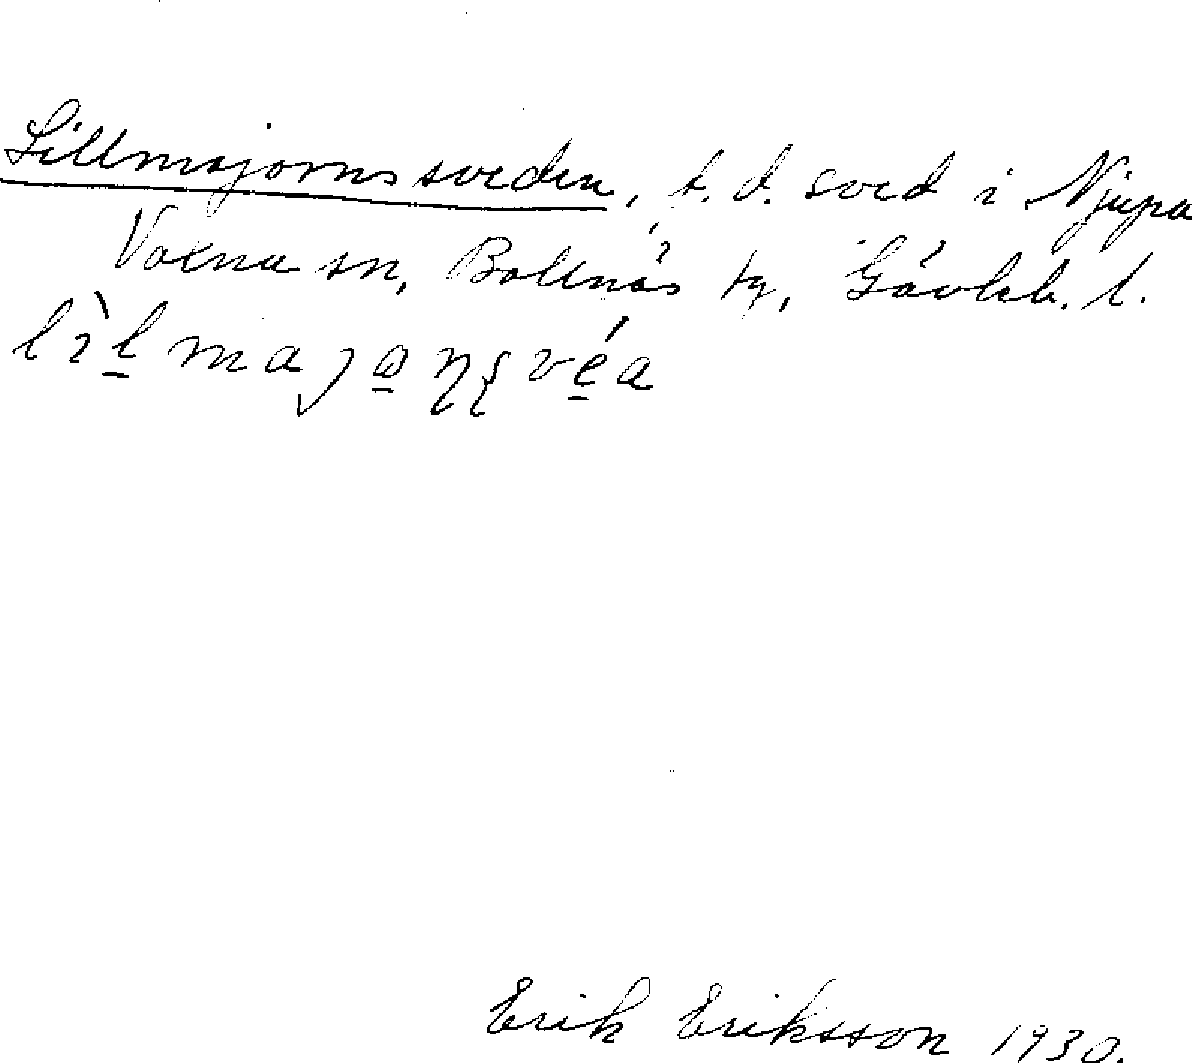 Lillmajornssveden, f.d. sved i Njupa
Voxna sn, Bollnäs tg, Gävleb. l.
lìl majoɳʂvéa
Erik Eriksson 1930.